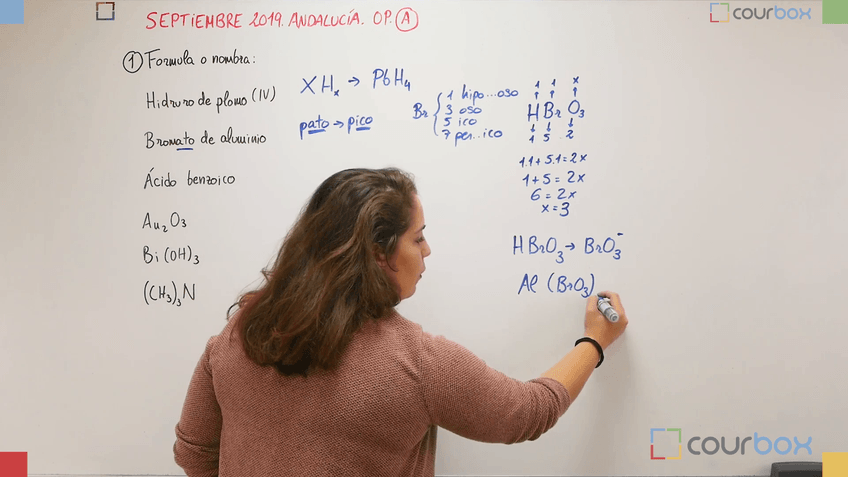 SEPTIEMBRE 2019. ANDALUCÍA. OP. A
courbox
1 Formula o nombra:
Hidruro de plomo (IV)
Bromato de aluminio
Ácido benzoico
Au2O3
Bi(OH)3
(CH3)3N
XHx → PbH4
pato → pico
Br { 1 hipo...oso
3 oso
5 ico
7 per...ico
1 1 x
HBrO3
1 5 2
1.1 + 5.1 = 2x
1 + 5 = 2x
6 = 2x
x = 3
HBrO3 → BrO3-
Al (BrO3)
courbox